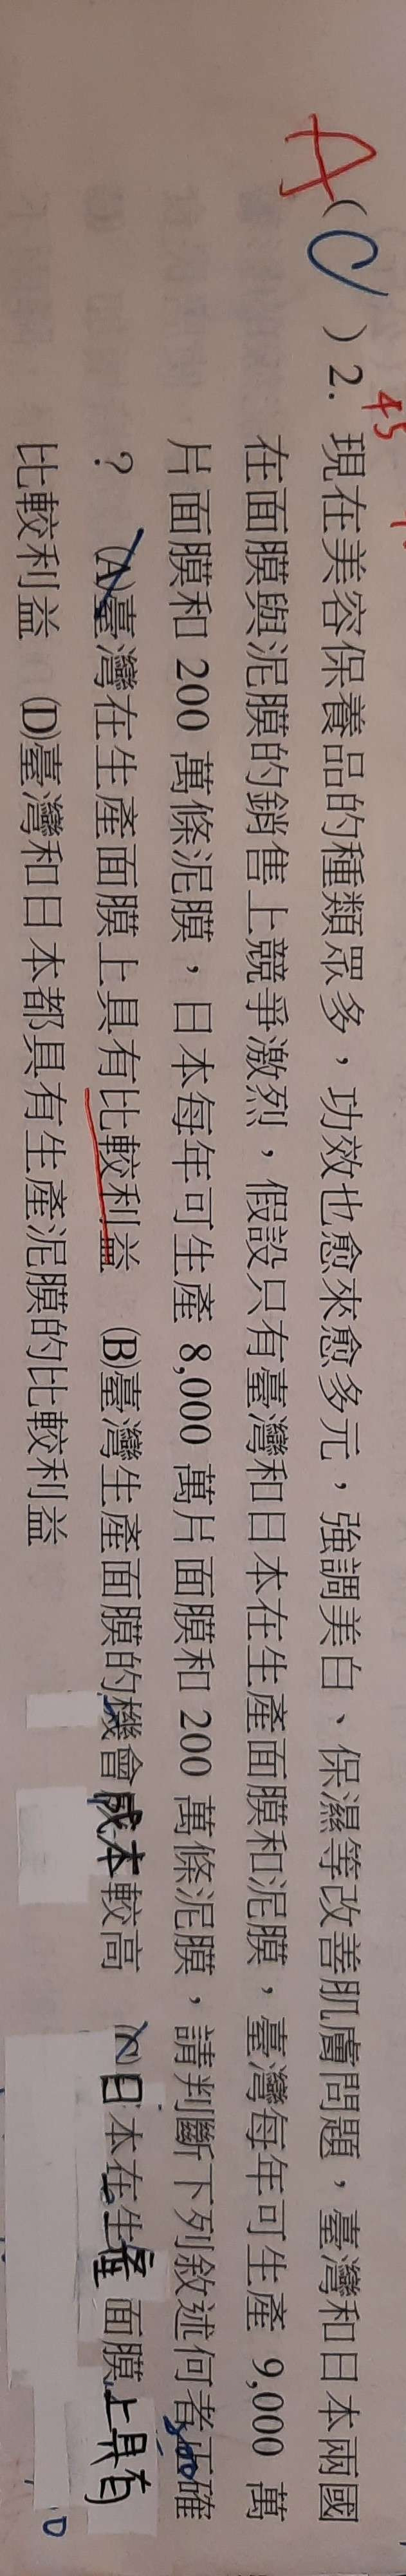 A(C)2. 現在美容保養品的種類眾多，功效也愈來愈多元，強調美白、保濕等改善肌膚問題，臺灣和日本兩國
45
在面膜與泥膜的銷售上競爭激烈，假設只有臺灣和日本在生產面膜和泥膜，臺灣每年可生產 9,000 萬
片面膜和 200 萬條泥膜，日本每年可生產 8,000 萬片面膜和 200 萬條泥膜，請判斷下列敘述何者正確
？ (A)臺灣在生產面膜上具有比較利益 (B)臺灣生產面膜的機會成本較高 (C)日本在生產面膜上具有
比較利益 (D)臺灣和日本都具有生產泥膜的比較利益
D